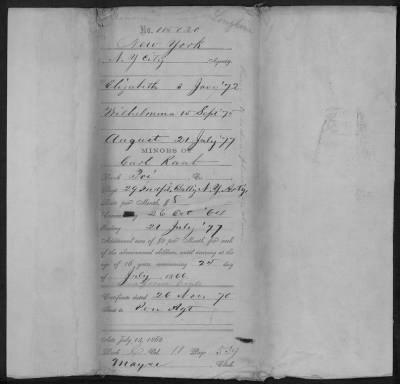 No. 118820
New York
N.Y. City Agency
Elizabeth 3 Jan'y '72
Wilhelmina 15 Sept '75
August 21 July '77
MINORS OF
Carl Raab
Rank Pvt Co.
Regt 29 Indpt. Batty N.Y. Arty.
Rate per Month, $8
Commencing 26 Oct '64
Ending 21 July '77
Additional sum of $2 per Month for each
of the abovenamed children, until arriving at the
age of 16 years, commencing 25 day
of July 1866
Certificate dated 26 Nov 70
Sent to Pen Agt
Act July 14, 1862.
Book Vol. H Page 559
Mayne Clerk